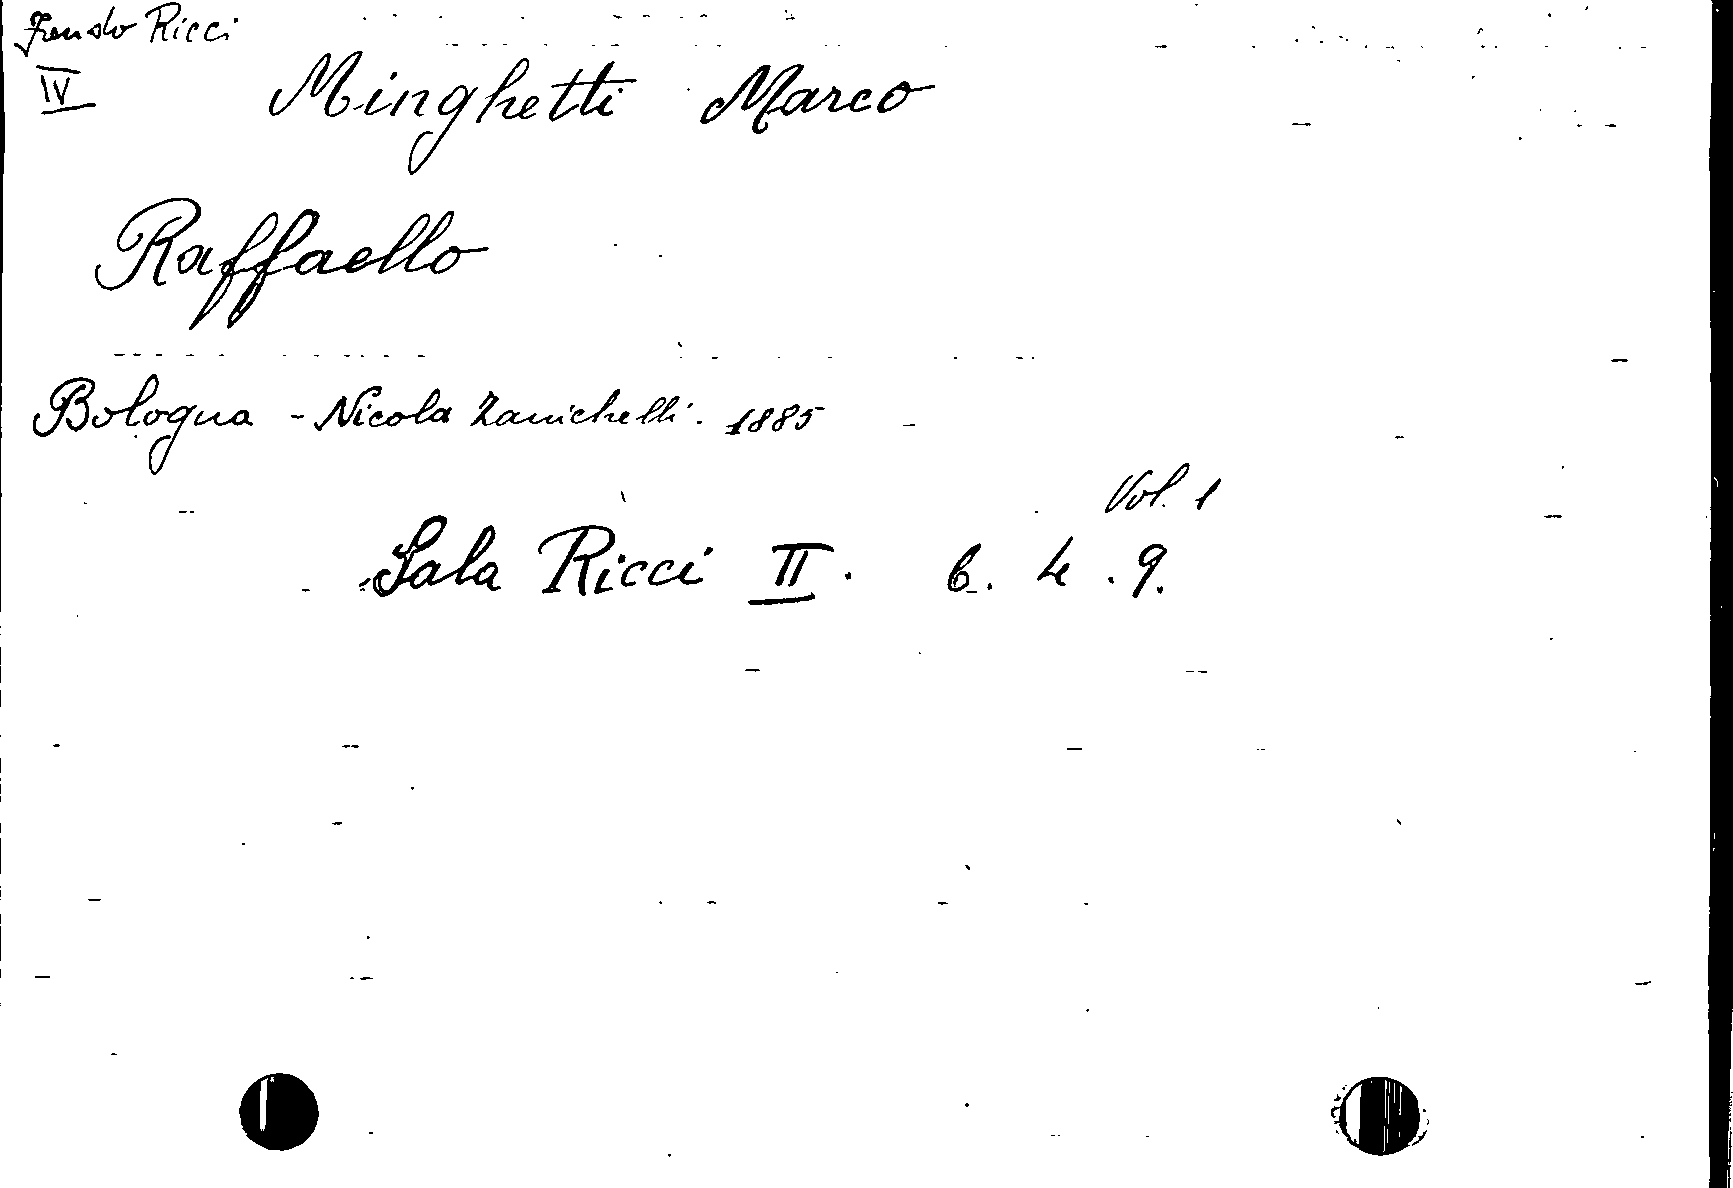 Fondo Ricci
IV
Minghetti Marco
Raffaello
Bologna - Nicola Zanichelli. 1885
Vol. 1
Sala Ricci II. 6. 4. 9.